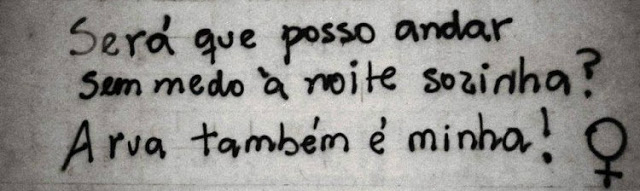 Será que posso andar
sem medo à noite sozinha?
A rua também é minha! ♀